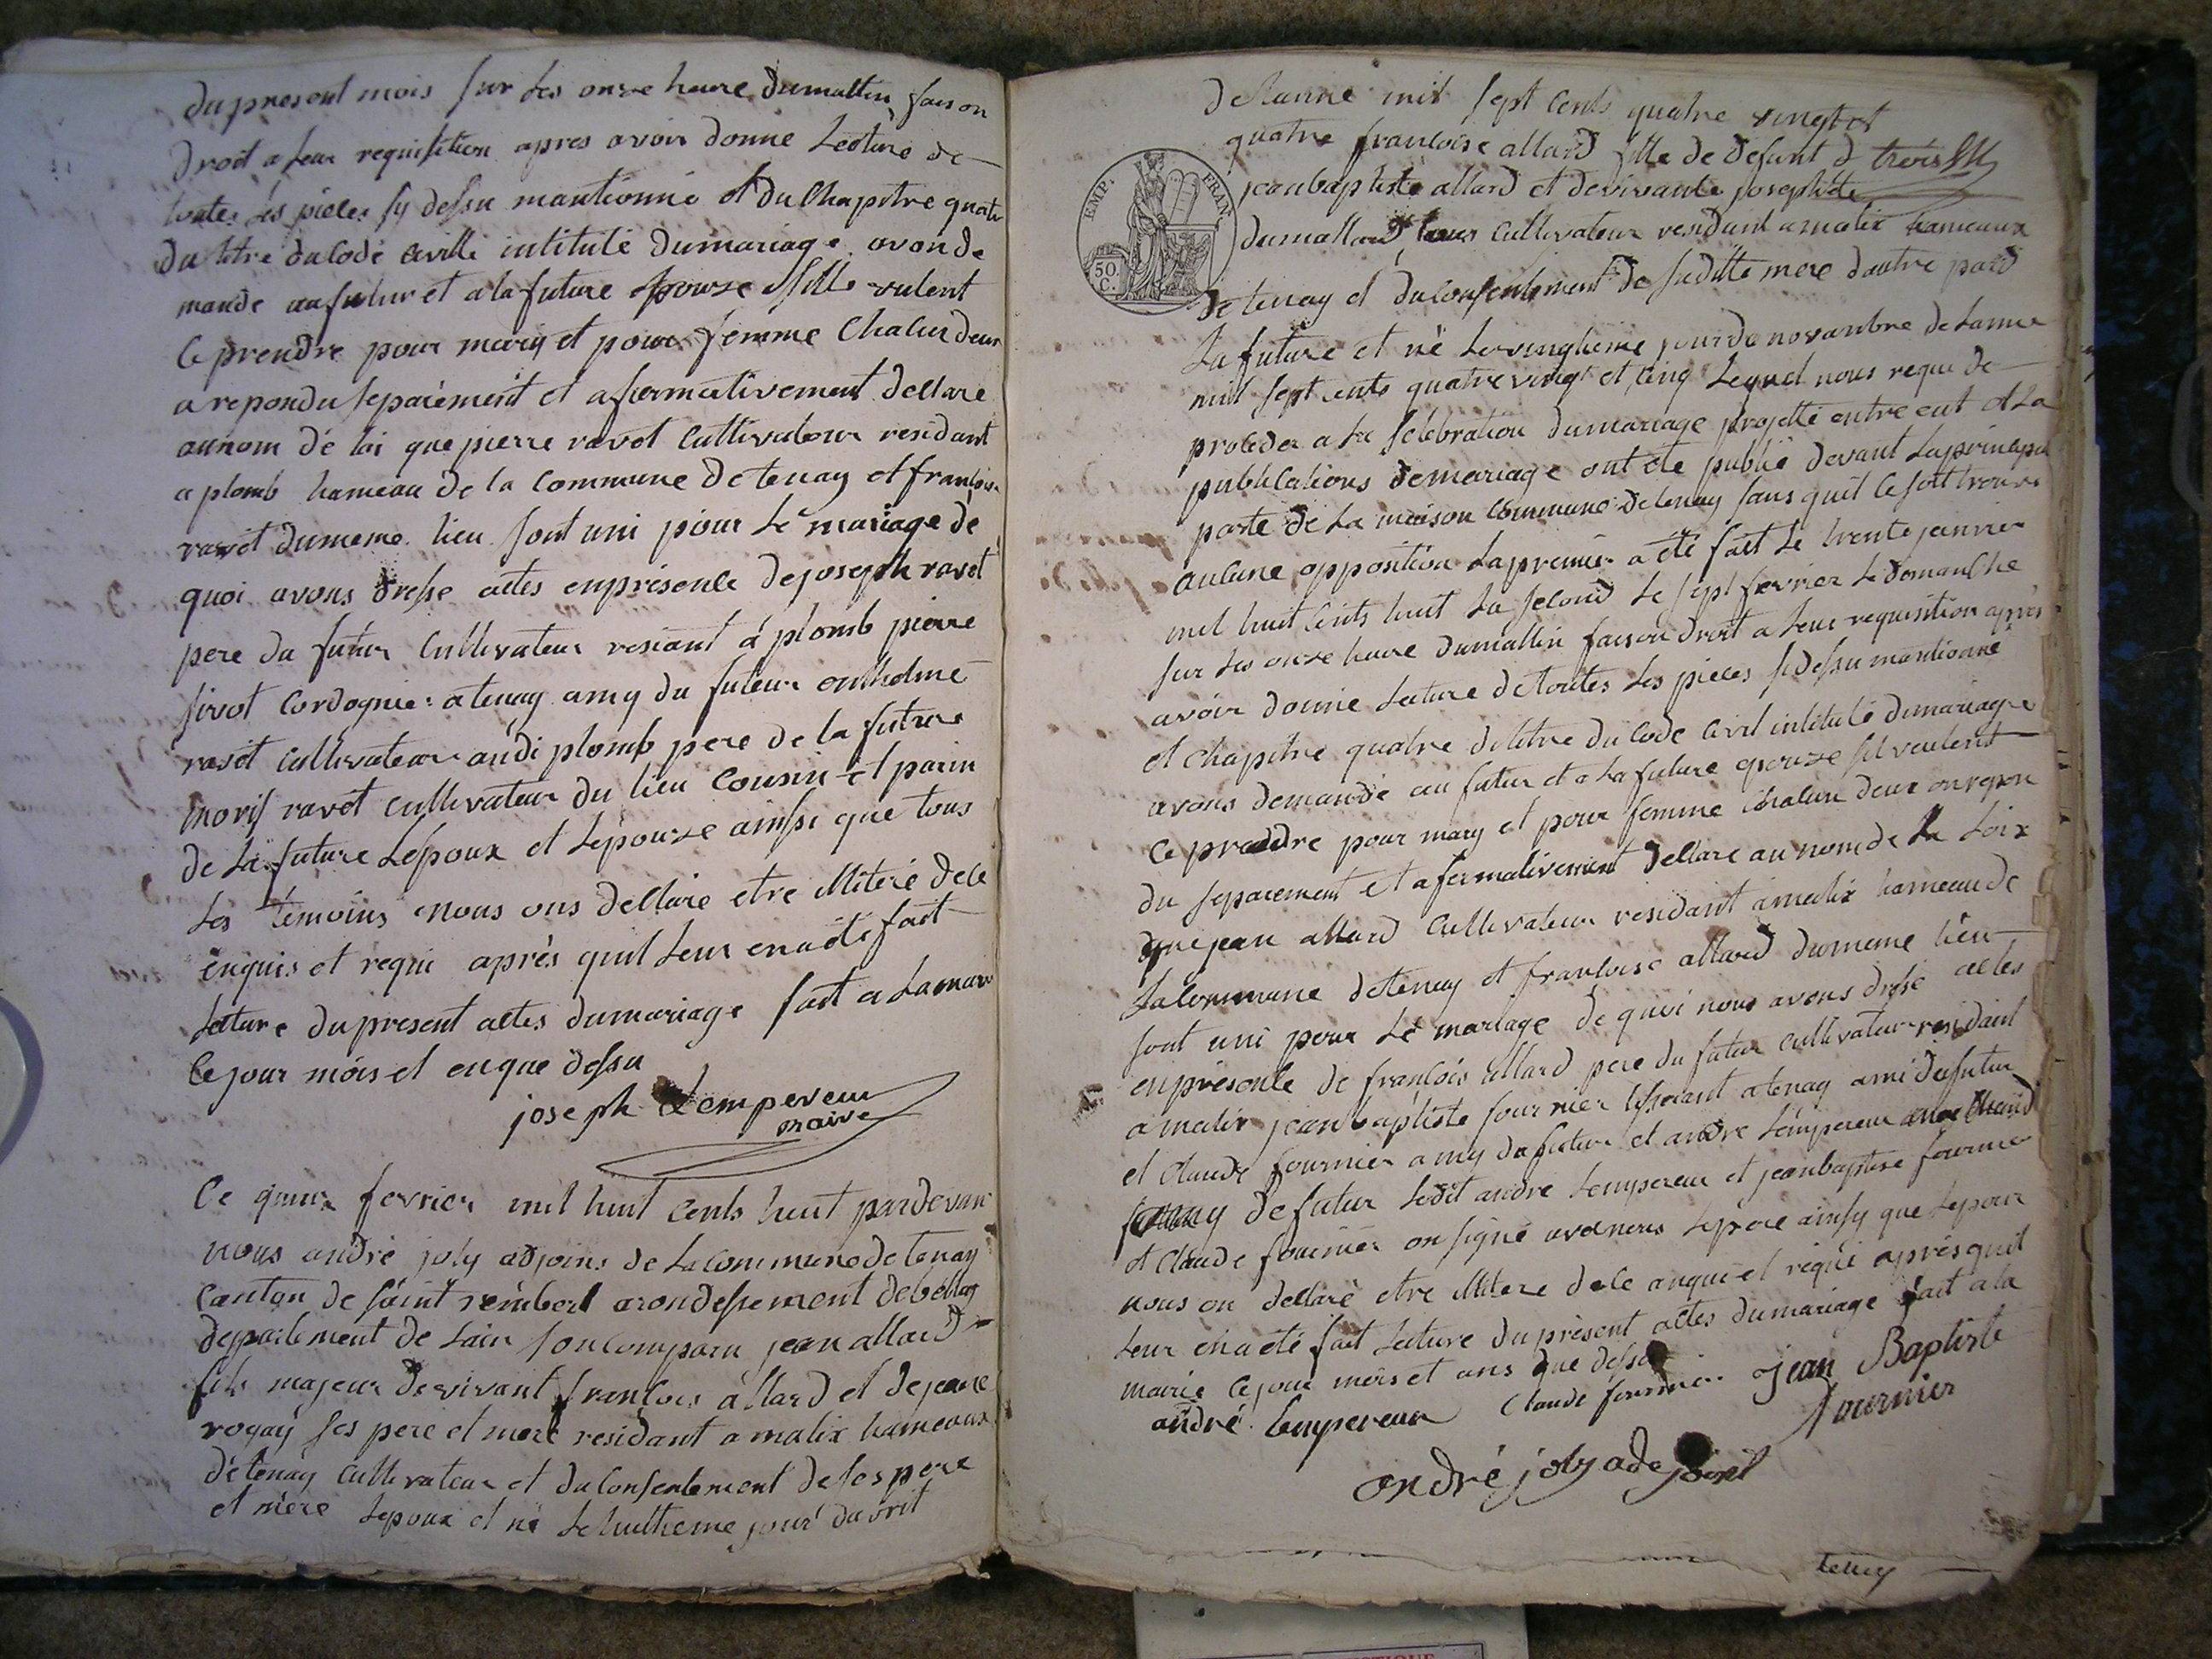 du present mois sur les onze heure du mattin faison
droit a leur requisition apres avoir donne lecture de
toutes les pieces sy dessu mantionne et du Chapitre quatre
du titre du Code Civille intitulé du mariage avon de
mandé au futur et a la future epouze sille vulent
ce prendre pour mary et pour femme Chalun deux
a repondu separément et afirmativement dellare
au nom de loi que pierre ravet Cultivateur residant
a plomb hameau de la Commune de tenay et françoise
ravet du meme lieu sont uni pour le mariage de
quoi avons dresse actes en présence de joseph ravet
pere du futur Cultivateur resident à plomb pierre
sivot Cordognier a tenay amy du futeur anthelme
ravet Cultivateur audi plomb pere de la future
moris ravet cultivateur du lieu Cousin et parin
de la future L'epoux et L'épouze ainssi que tous
Les témoins nous ons dellaré etre illiteré de ce
enquis et requi après quil leur en a été fait
lecture du present actes du mariage fait a la mairie
le jour mois et en que dessu
joseph Lempereur
maire
Ce quinze fevrier mil huit Cents huit pardevant
nous andré joly adjoins de la commune de tenay
Canton de saint rembert arondessement de belley
departement de Lain son comparu jean allard
fils majeur de vivant françois allard et de jeane
rogay ses pere et mere residant a malix hameaux
de tenay Cultivateur et du Consentement de ses pere
et mère Lepoux et né le huitieme jour davril
de Lanné mil sept Cents quatre vingt et
quatre françoise allard fille de defunt d trois
jean baptiste allard et de vivante josephte
dumollard tous Cultivateur residant a malix hameaux
de tenay et du Consentement de sa ditte mere d'autre pard
La future et né le vingtieme jour de novanbre de Lanné
mil sept cents quatre vingt et cinq Lequel nous reque de
proceder a la selebration du mariage projetté entre eut et la
publications de mariage ont été publié devant la principal
porte de la maison Commune de tenay sans quil ce soit trouvé
aucune opposition La premier a été fait le trente janvier
mil huit Cents huit La second le sept fevrier le domanche
sur les onze heure du mattin faison droit a leur requisition apres
avoir donné lecture de toutes les pieces sy dessu mantionné
et Chapitre quatre de titre du Code Civil intitulé du mariage
avons demandé au futur et a la future epouze sil veulent
ce prendre pour mary et pour femme Chalun deux on repon
du separement et afermativement dellare au nom de la Loix
que jean allard Cultivateur residant a malix hameau de
la Commune de tenay et françoise allard du meme lieu
sont uni pour le mariage de quoi nous avons dressé actes
en présence de françois allard pere du futur cultivateur residant
a malix jean baptiste fournier tisserant a tenay ami du futur
et Claude fournier amy du futur et andre Lempereur
amy de futur ledit andre Lempereur et jean baptiste fournier
et Claude fournier on signé avec nous le pere ainsy que Lepoux
nous on dellaré etre illitere de ce anqui et requi après quil
leur en a été fait lecture du présent actes du mariage fait a la
mairie le jour mois et ans que dessu
andré Lempereur Claude fournier jean Baptiste
fournier
andré joly adejoint
tenay
EMP. FRAN.
50 C.